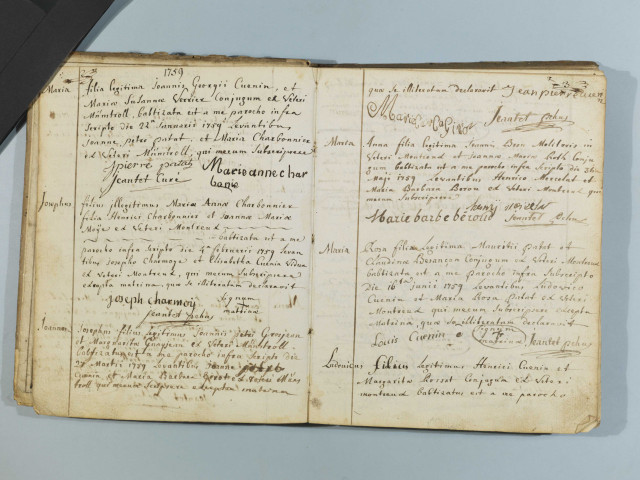 1759
Maria filia legitima Joannis Georgii Cuenin, et
Mariæ Susannæ Verrier Conjugum ex Veteri
Münstroll, baptizata est a me parocho infra
Scripto die 22ª Januarii 1759 Levantibus,
Joanne petro patat, et Maria Charbonnier
ex Veteri Münstroll, qui mecum Subscripsere
jpierre patat Marie anne char
Jeantet Curé bonie
Josephus filius illegitimus Mariæ Annæ Charbonnier
filia Henrici Charbonier et Joannæ Mariæ
ex Veteri Montreux
baptizatus est a me
parocho infra Scripto die 4ª februarii 1759 Levan
tibus Josepho Charmoye et Elisabetha Cuenin Vidua
ex Veteri Montreux, qui mecum Subscripsere
excepta matrina, quæ se illiteratam declaravit
Joseph Charmoy Signum
Jeantet pchus matrinæ
Joannes Josephus filius legitimus Joannis petri Grosjean
et Margaritæ ex Veteri Münstroll
baptizatus est a me parocho infra Scripto die
27 Martii 1759 Levantibus Joanne petro
Cuenin et Maria Barbara ex Veteri Müns
troll qui mecum Scripsere excepta matrina
quæ se illiteratam declaravit Jean pierre cuenin
Jeantet pchus
Maria Anna filia legitima Joannis Bron Molitoris in
Veteri Montreux et Joannæ Mariæ Roth Conju
gum baptizata est a me parocho infra Scripto die
Maji 1759 Levantibus Henrico Marcelat et
Maria Barbara Beron ex Veteri Montreux qui
mecum Subscripsere
Marie barbe béron Jeantet pchus
Maria Rosa filia legitima Mauritii patat et
Claudinæ Besançon Conjugum ex Veteri Montreux
baptizata est a me parocho infra Subscripto
die 16ª junii 1759 Levantibus Ludovico
Cuenin et Maria Rosa Patat ex Veteri
Montreux qui mecum Subscripsere excepta
Matrina, quæ se illiteratam declaravit
Louis Cuenin matrinæ Jeantet pchus
Ludovicus filius Legitimus Henrici Cuenin et
Margaritæ Rosset Conjugum ex Veteri
montreux baptizatus est a me parocho